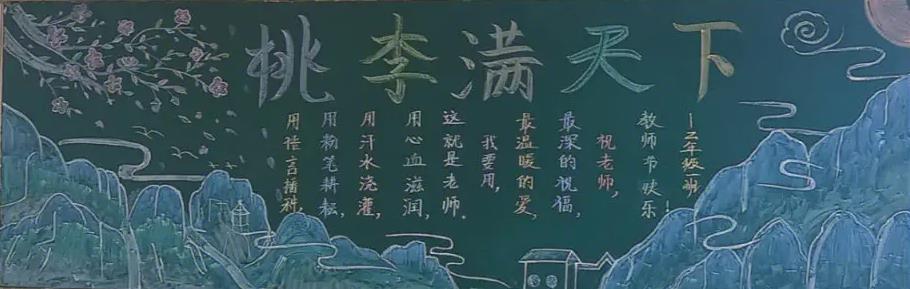 桃李满天下
用语言播种,
用粉笔耕耘,
用汗水浇灌,
用心血滋润,
这就是老师.
我要用,
最温暖的爱,
最深的祝福,
祝老师,
教师节快乐!
—二年级一班